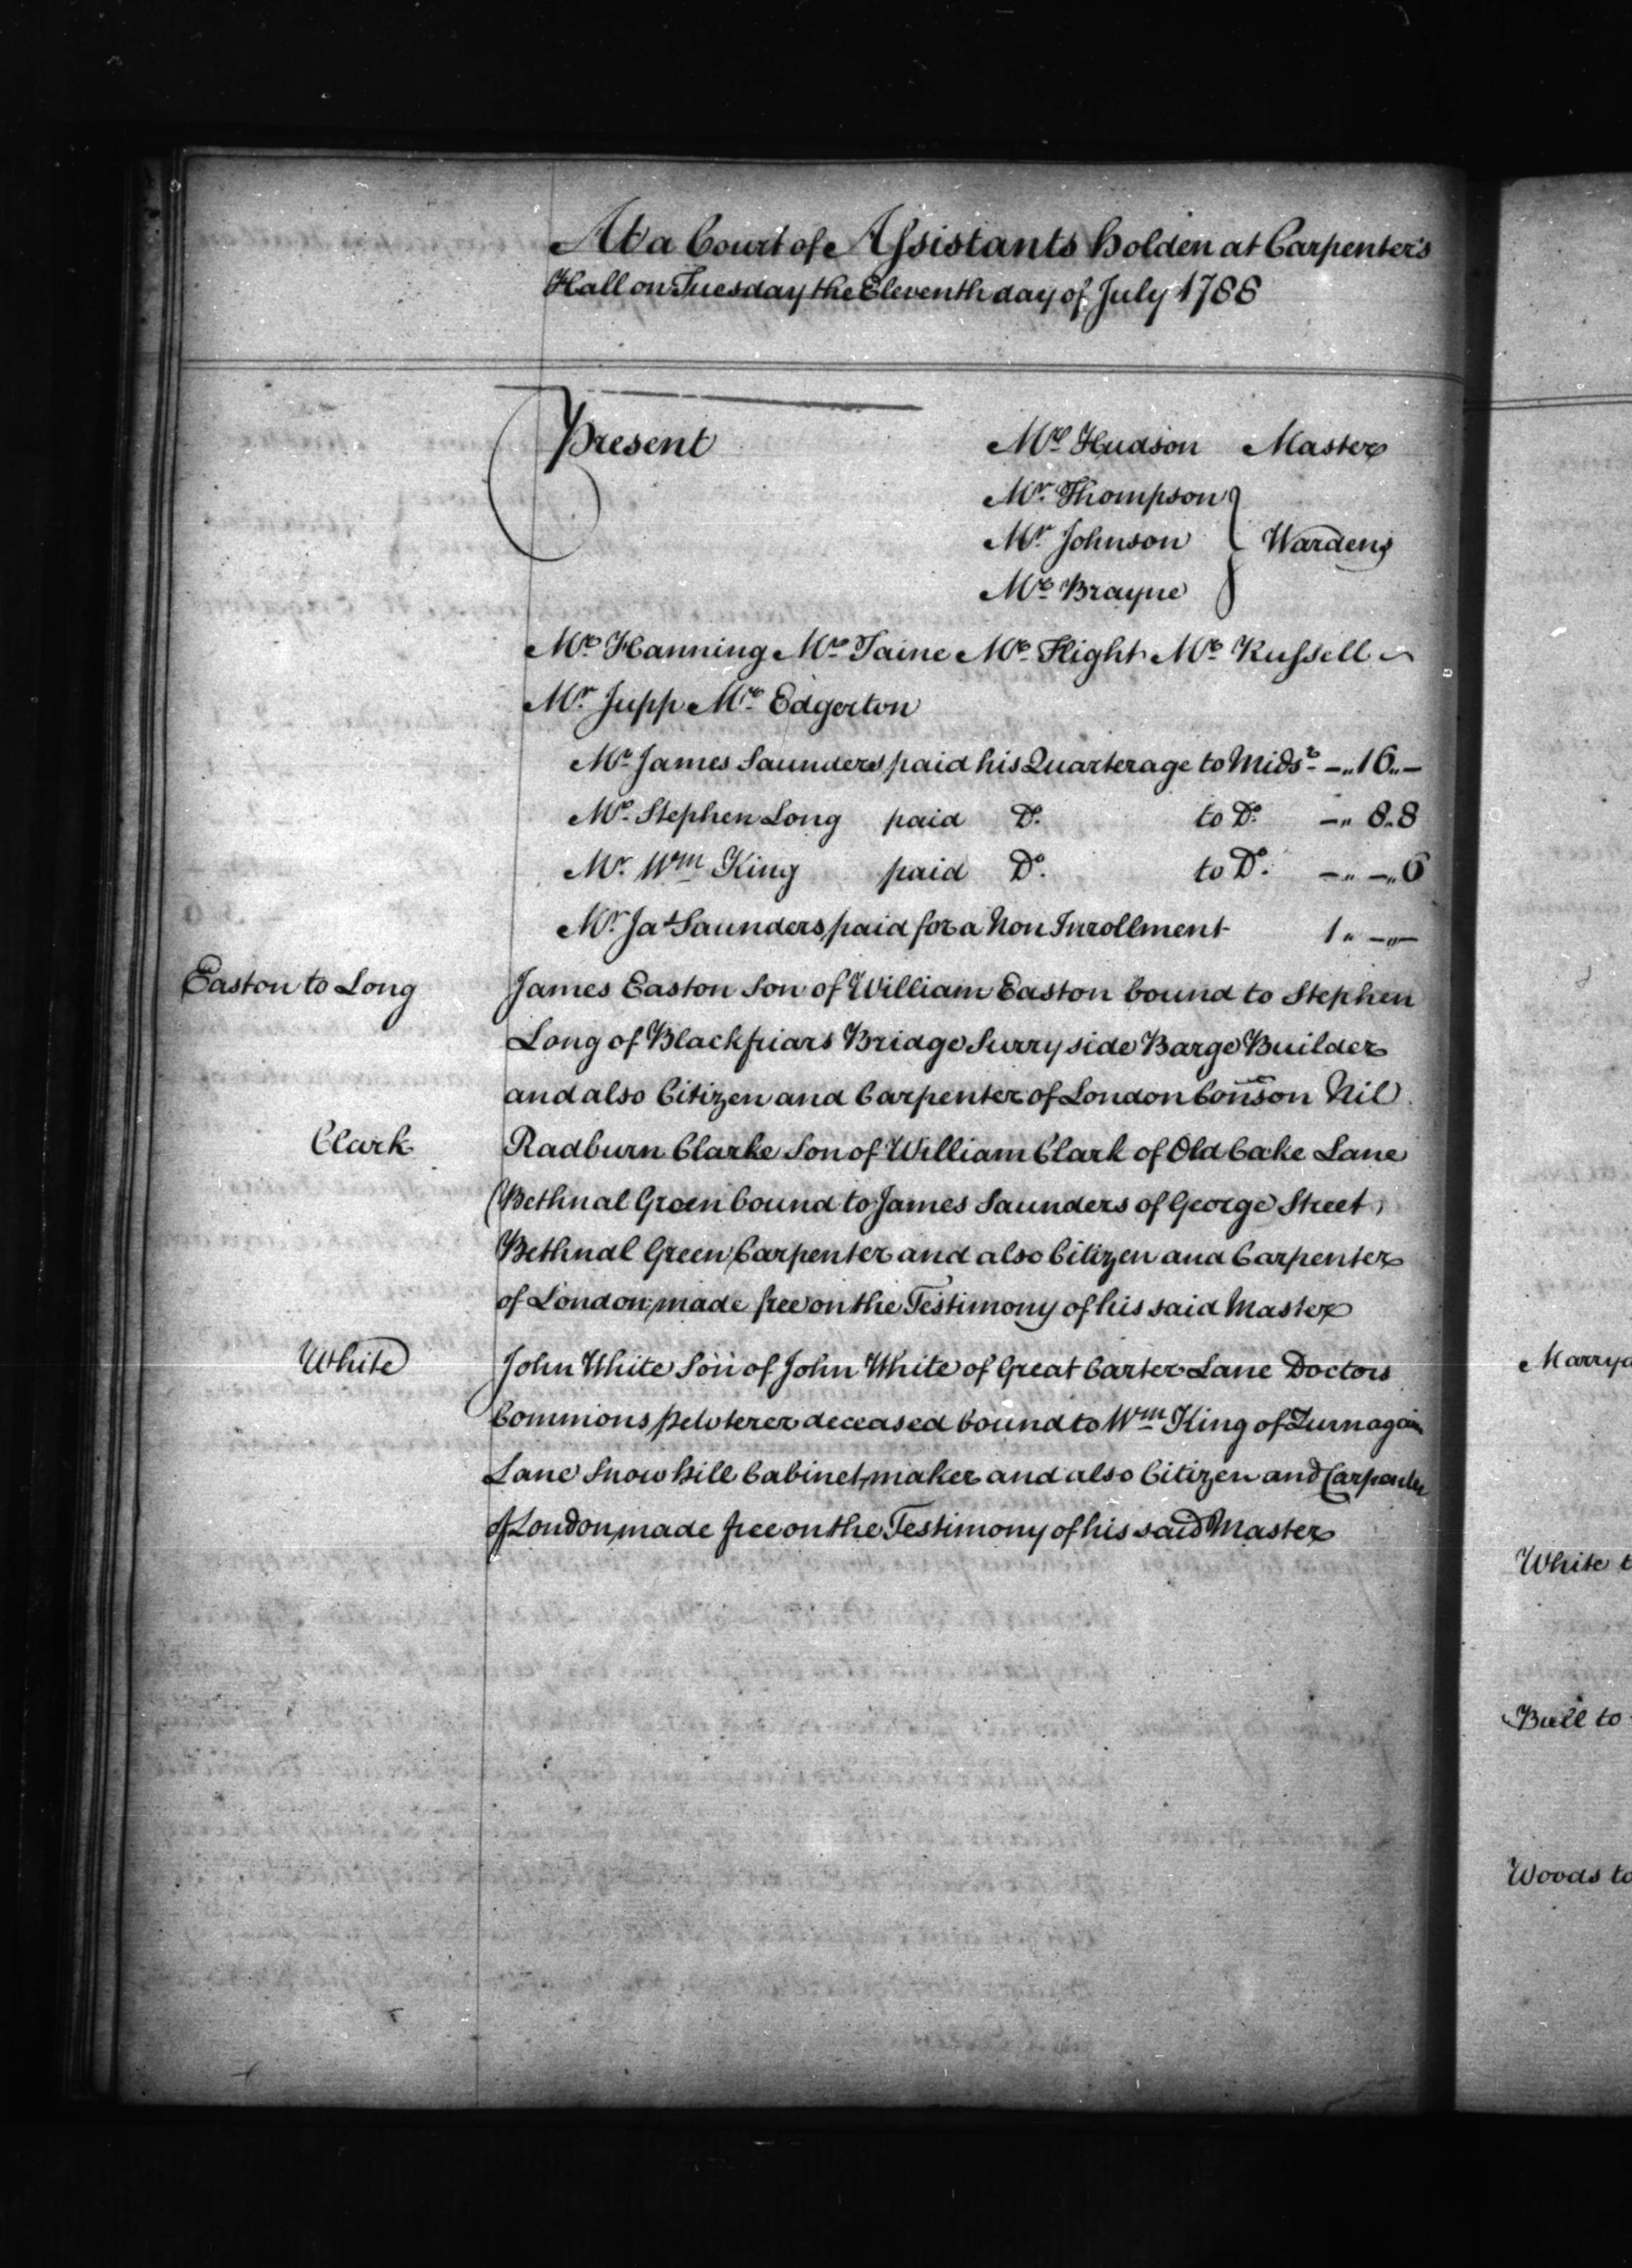 At a Court of Assistants holden at Carpenters
Hall on Tuesday the Eleventh day of July 1788
Present
Mr. Hudson Master
Mr. Thompson
Mr. Johnson Wardens
Mr. Brayne
Mr. Hanning Mr. Taine Mr. Flight Mr. Russell
Mr. Jupp Mr. Edgerton
Mr. James Saunders paid his Quarterage to Midsr. -„16„-
Mr. Stephen Long paid Do. to Do. -„ 8„8
Mr. Wm King paid Do. to Do. -„ -„6
Mr. Jas Saunders paid for a Non Inrollment 1„ -„-
Easton to Long James Easton Son of William Easton bound to Stephen
Long of Blackfriars Bridge Surry side Barge Builder
and also Citizen and Carpenter of London Conson Nil
Clark Radburn Clarke Son of William Clark of Old Cocke Lane
Bethnal Green bound to James Saunders of George Street
Bethnal Green Carpenter and also Citizen and Carpenter
of London made free on the Testimony of his said Master
White John White Son of John White of Great Carter Lane Doctors
Commons pewterer deceased bound to Wm King of Turnagain
Lane Snow hill Cabinet maker and also Citizen and Carpenter
of London made free on the Testimony of his said Master
White t
Bull to
Woods to